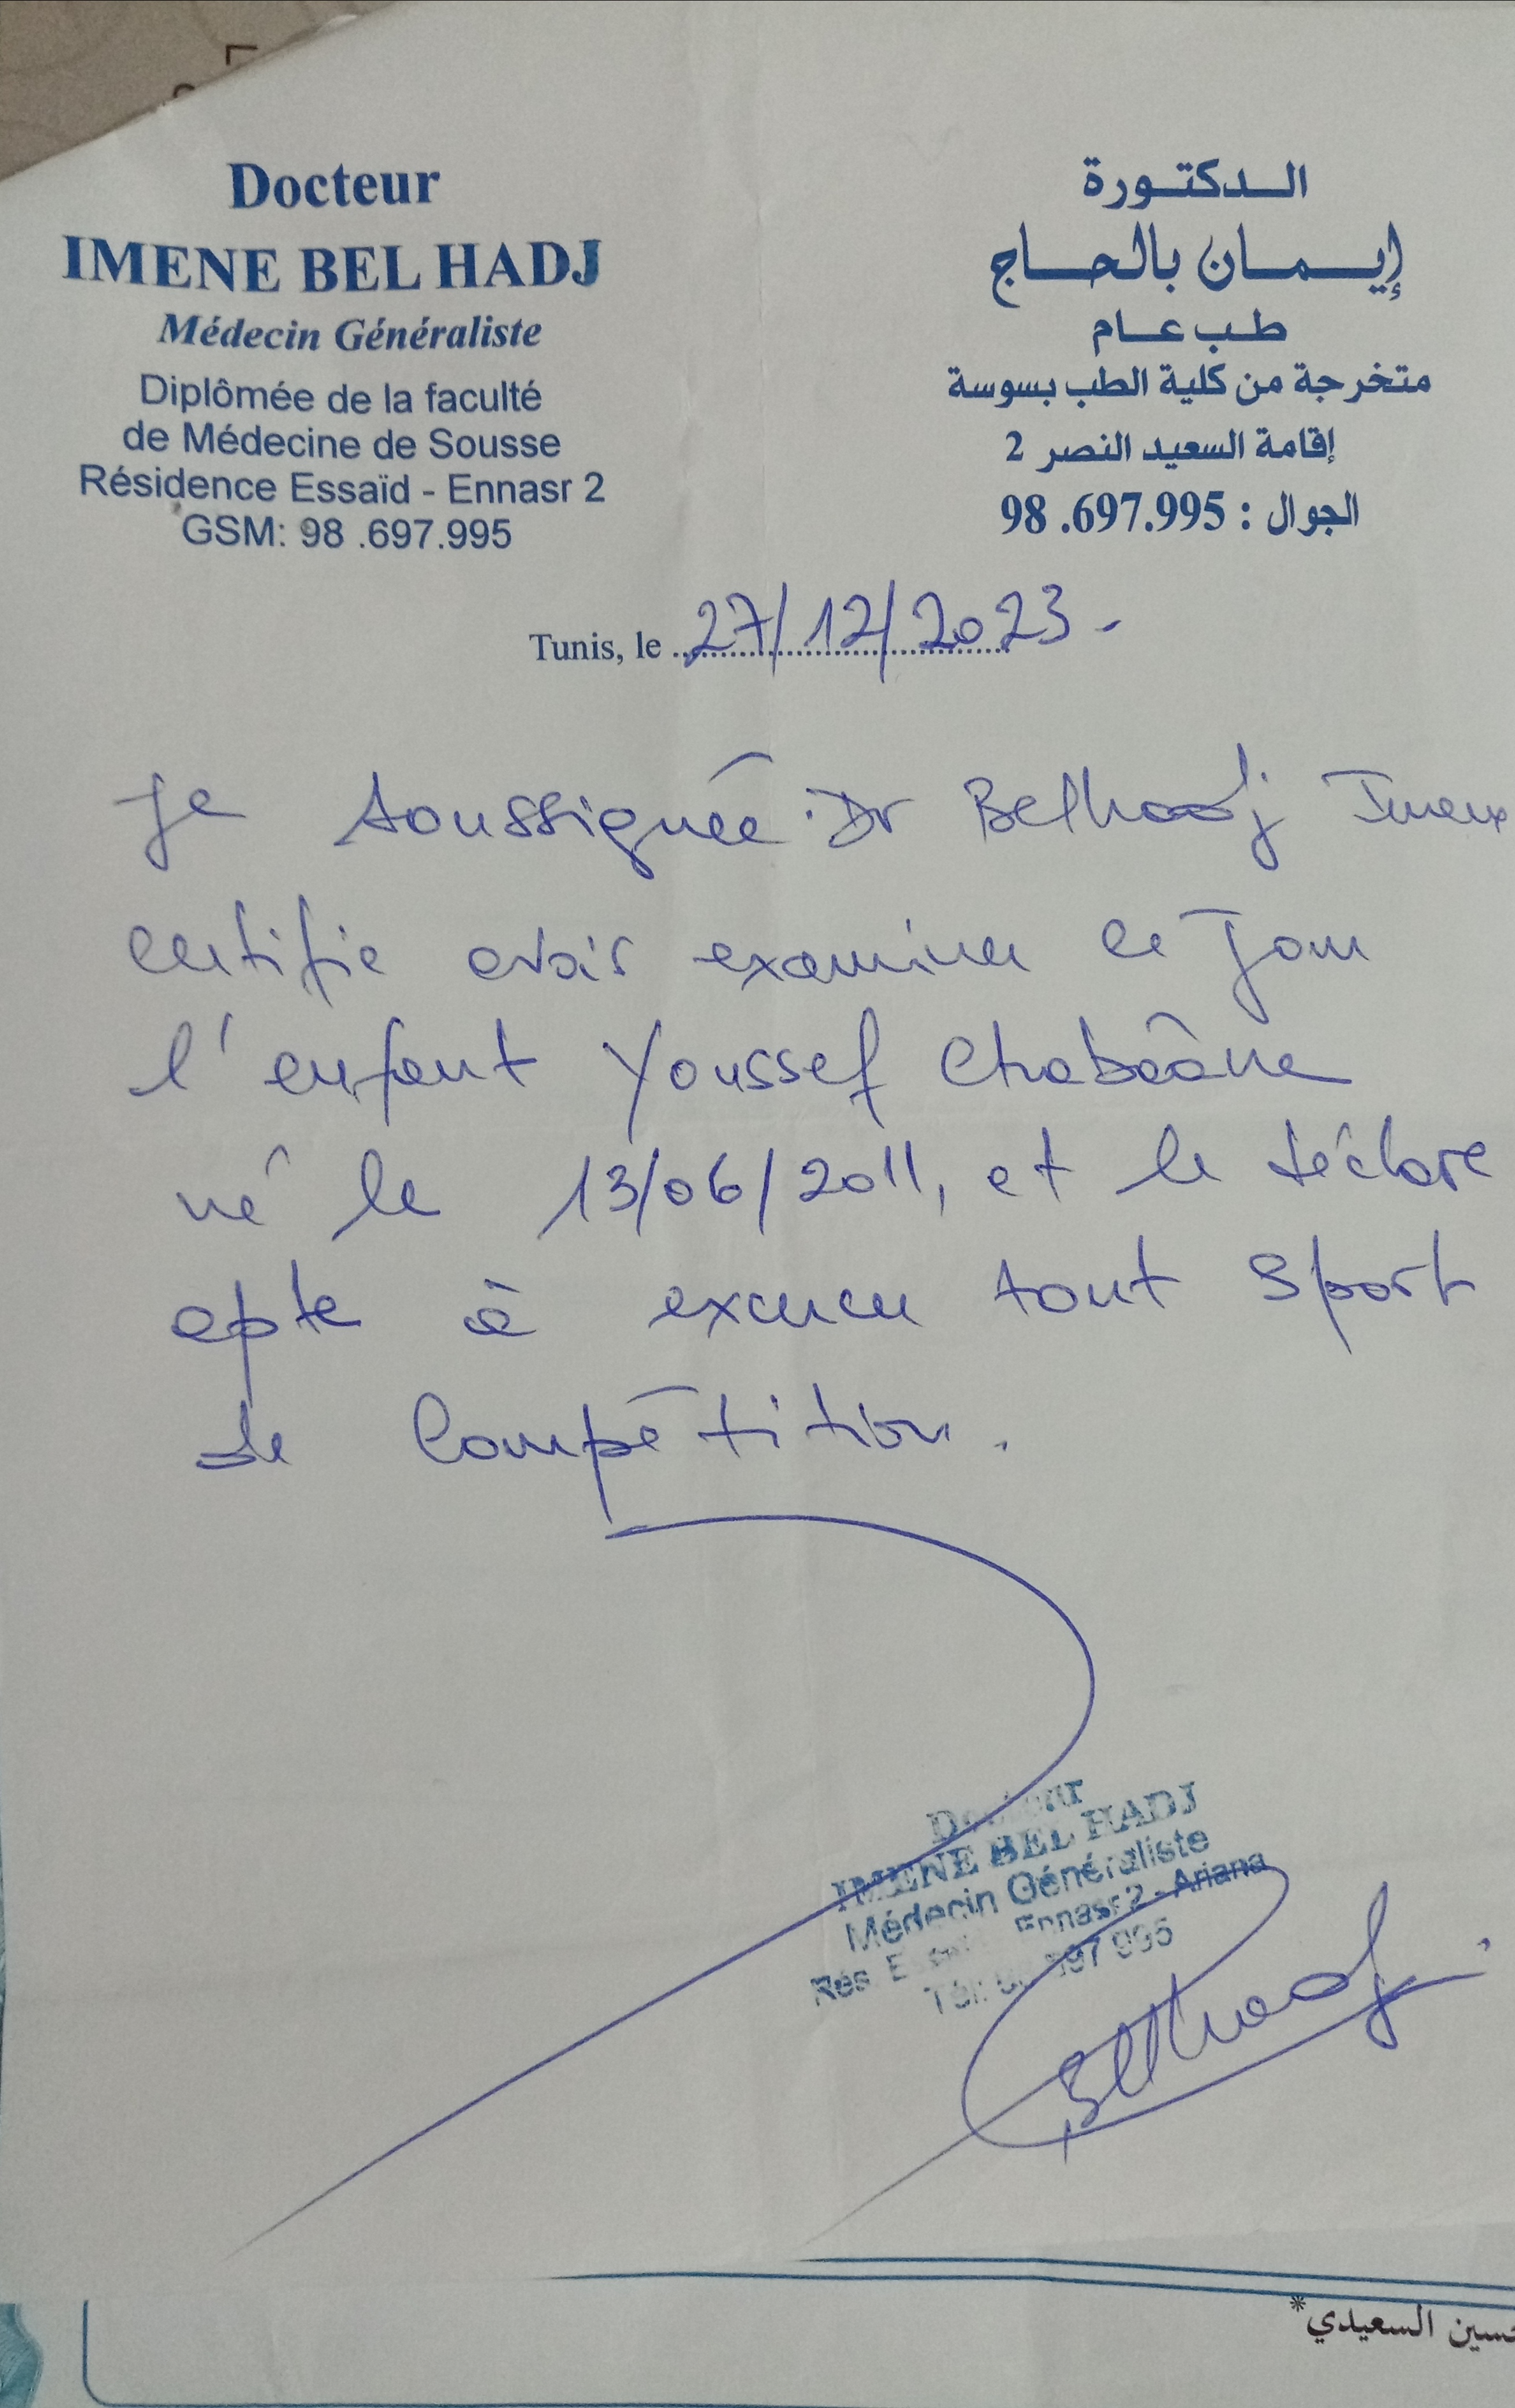 Docteur
IMENE BEL HADJ
Médecin Généraliste
Diplômée de la faculté
de Médecine de Sousse
Résidence Essaïd - Ennasr 2
GSM: 98 .697.995
الدكتورة
إيمان بالحاج
طب عام
متخرجة من كلية الطب بسوسة
إقامة السعيد النصر 2
الجوال : 98 .697.995
Tunis, le 27/12/2023 -
Je soussignée Dr Belhadj Imene
certifie avoir examiner ce jour
l'enfant Youssef Chabâane
né le 13/06/2011, et le déclare
apte à exercer tout sport
de compétition.
Docteur
IMENE BEL HADJ
Médecin Généraliste
Rés. Ennasr 2 - Ariana
Tél: 697 995
Belhadj
السعيدي*